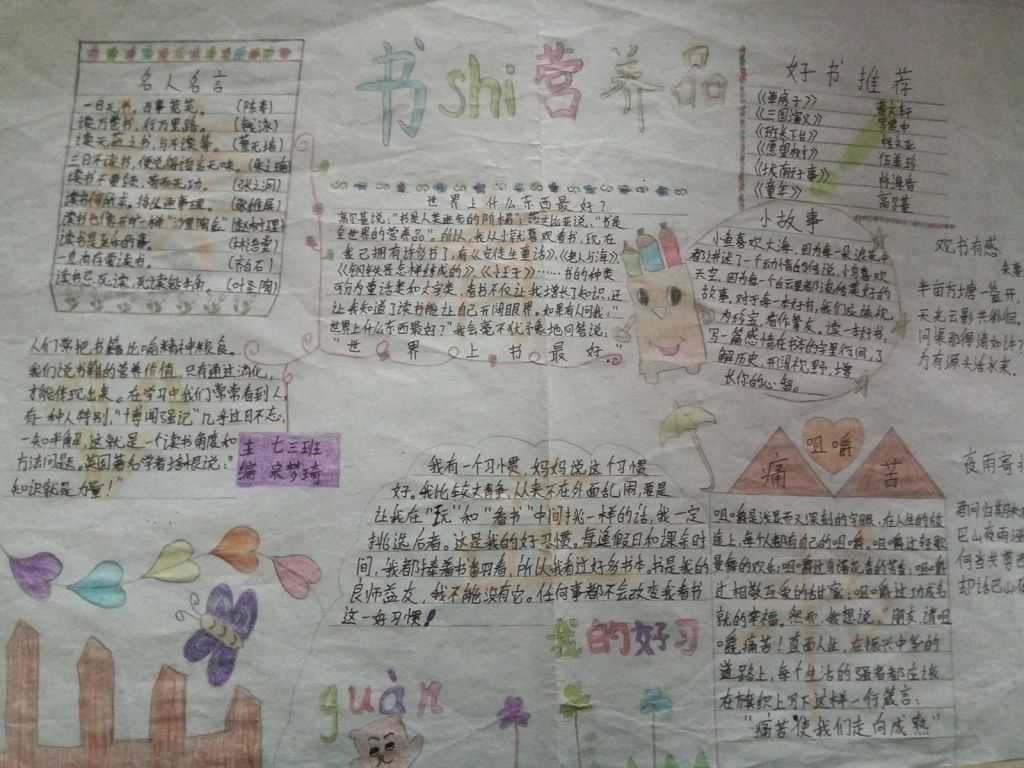 书shi营养品
名人名言
一日无书，百事荒芜。 (陈寿)
读万卷书，行万里路。
读书不要贪多
三日不读书，便觉得语言无味。(朱
(张之洞)
(赵树理)
读书是至味的事。
一息尚存要读书。
读书忌死读，死读钻牛角。 (叶圣陶)
世界上什么东西最好？
高尔基说："书是人类进步的阶梯"；莎士比亚说："书是
全世界的营养品"。所以，我从小就喜欢看书，现在
我已拥有许多书了，有《安徒生童话》、《老人与海》、
《钢铁是怎样炼成的》、《小王子》……书的种类
可分为童话类和文学类，看书不仅让我增长了知识，还
让我知道了读书能让自己开阔眼界。如果有人问我："
世界上什么东西最好？"我会毫不犹予地回答说：
"世界上书最好。"
好书推荐
《草房子》 曹文轩
《三国演义》 罗贯中
《班长下台》 桂文亚
《愿望树》 伍美珍
《城南旧事》 林海音
《童年》 高尔基
小故事
小鱼喜欢大海，因为每一朵浪花中
都讲述了一个动情的传说，小鸟喜欢
天空，因为每个白云里都流传美好的
故事，对于每一本好书，我们应该视
为珍宝，看作挚友。读一本好书，
写一篇感情在书本的字里行间，了
解历史，开阔视野，增
长你的心智。
观书有感
朱熹
半亩方塘一鉴开，
天光云影共徘徊。
问渠那得清如许？
为有源头活水来。
人们常把书籍比喻精神粮食。
我们说书籍的营养价值，只有通过消化，
才能体现出来。在学习中我们常常看到人，
有一种人特别，"博闻强记"几乎过目不忘，
一知半解，这就是一个读书角度和
方法问题。英国著名学者培根说："
知识就是力量！"
主 七三班
编 宋梦琦
我有一个习惯，妈妈说这个习惯
好。我比较文静，从来不在外面乱闹，要是
让我在"玩"和"看书"中间挑一样的话，我一定
挑选后者。这是我的好习惯。每逢假日和课余时
间，我都捧着书翻看，所以我看过好多书本，书是我的
良师益友，我不能没有它。任何事都不会改变我看书
这一好习惯！
我的好习
guàn
痛 咀嚼 苦
咀嚼是浅显而又深刻的字眼，在人生的旅
途上，每个人都有自己的咀嚼。咀嚼过轻歌
曼舞的欢乐；咀嚼过 的苦涩；咀嚼
过相敬互爱的甘蜜；咀嚼过功成名
就的幸福。然而，我想说："朋友，请咀
嚼痛苦！直面人生，在振兴中华的
道路上，每个生活的强者都应该
在旗帜上写下这样一行箴言：
"痛苦使我们走向成熟"
夜雨寄
君问归期未
巴山夜雨涨
何当共剪西
却话巴山